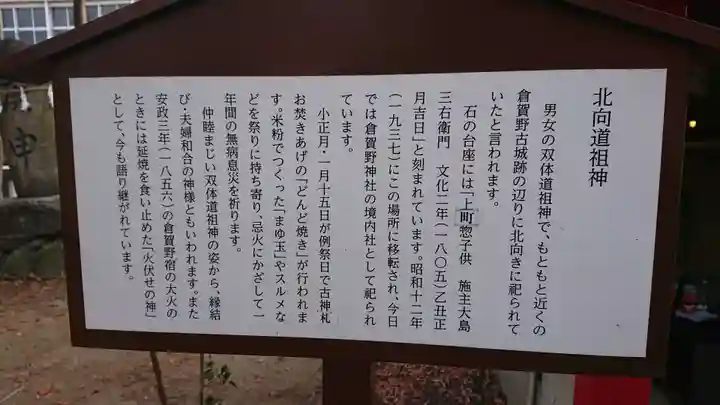 北向道祖神
男女の双体道祖神で、もともと近くの
倉賀野古城跡の辺りに北向きに祀られて
いたと言われます。
石の台座には「上町惣子供 施主大島
三右衛門 文化二年(一八〇五)乙丑正
月吉日」と刻まれています。昭和十二年
(一九三七)にこの場所に移転され、今日
では倉賀野神社の境内社として祀られ
ています。
小正月・一月十五日が例祭日で古神札
お焚きあげの「どんど焼き」が行われま
す。米粉でつくった「まゆ玉」やスルメな
どを祭りに持ち寄り、忌火にかざして一
年間の無病息災を祈ります。
仲睦まじい双体道祖神の姿から、縁結
び・夫婦和合の神様ともいわれます。また
安政三年(一八五六)の倉賀野宿の大火の
ときには延焼を食い止めた「火伏せの神」
として、今も語り継がれています。